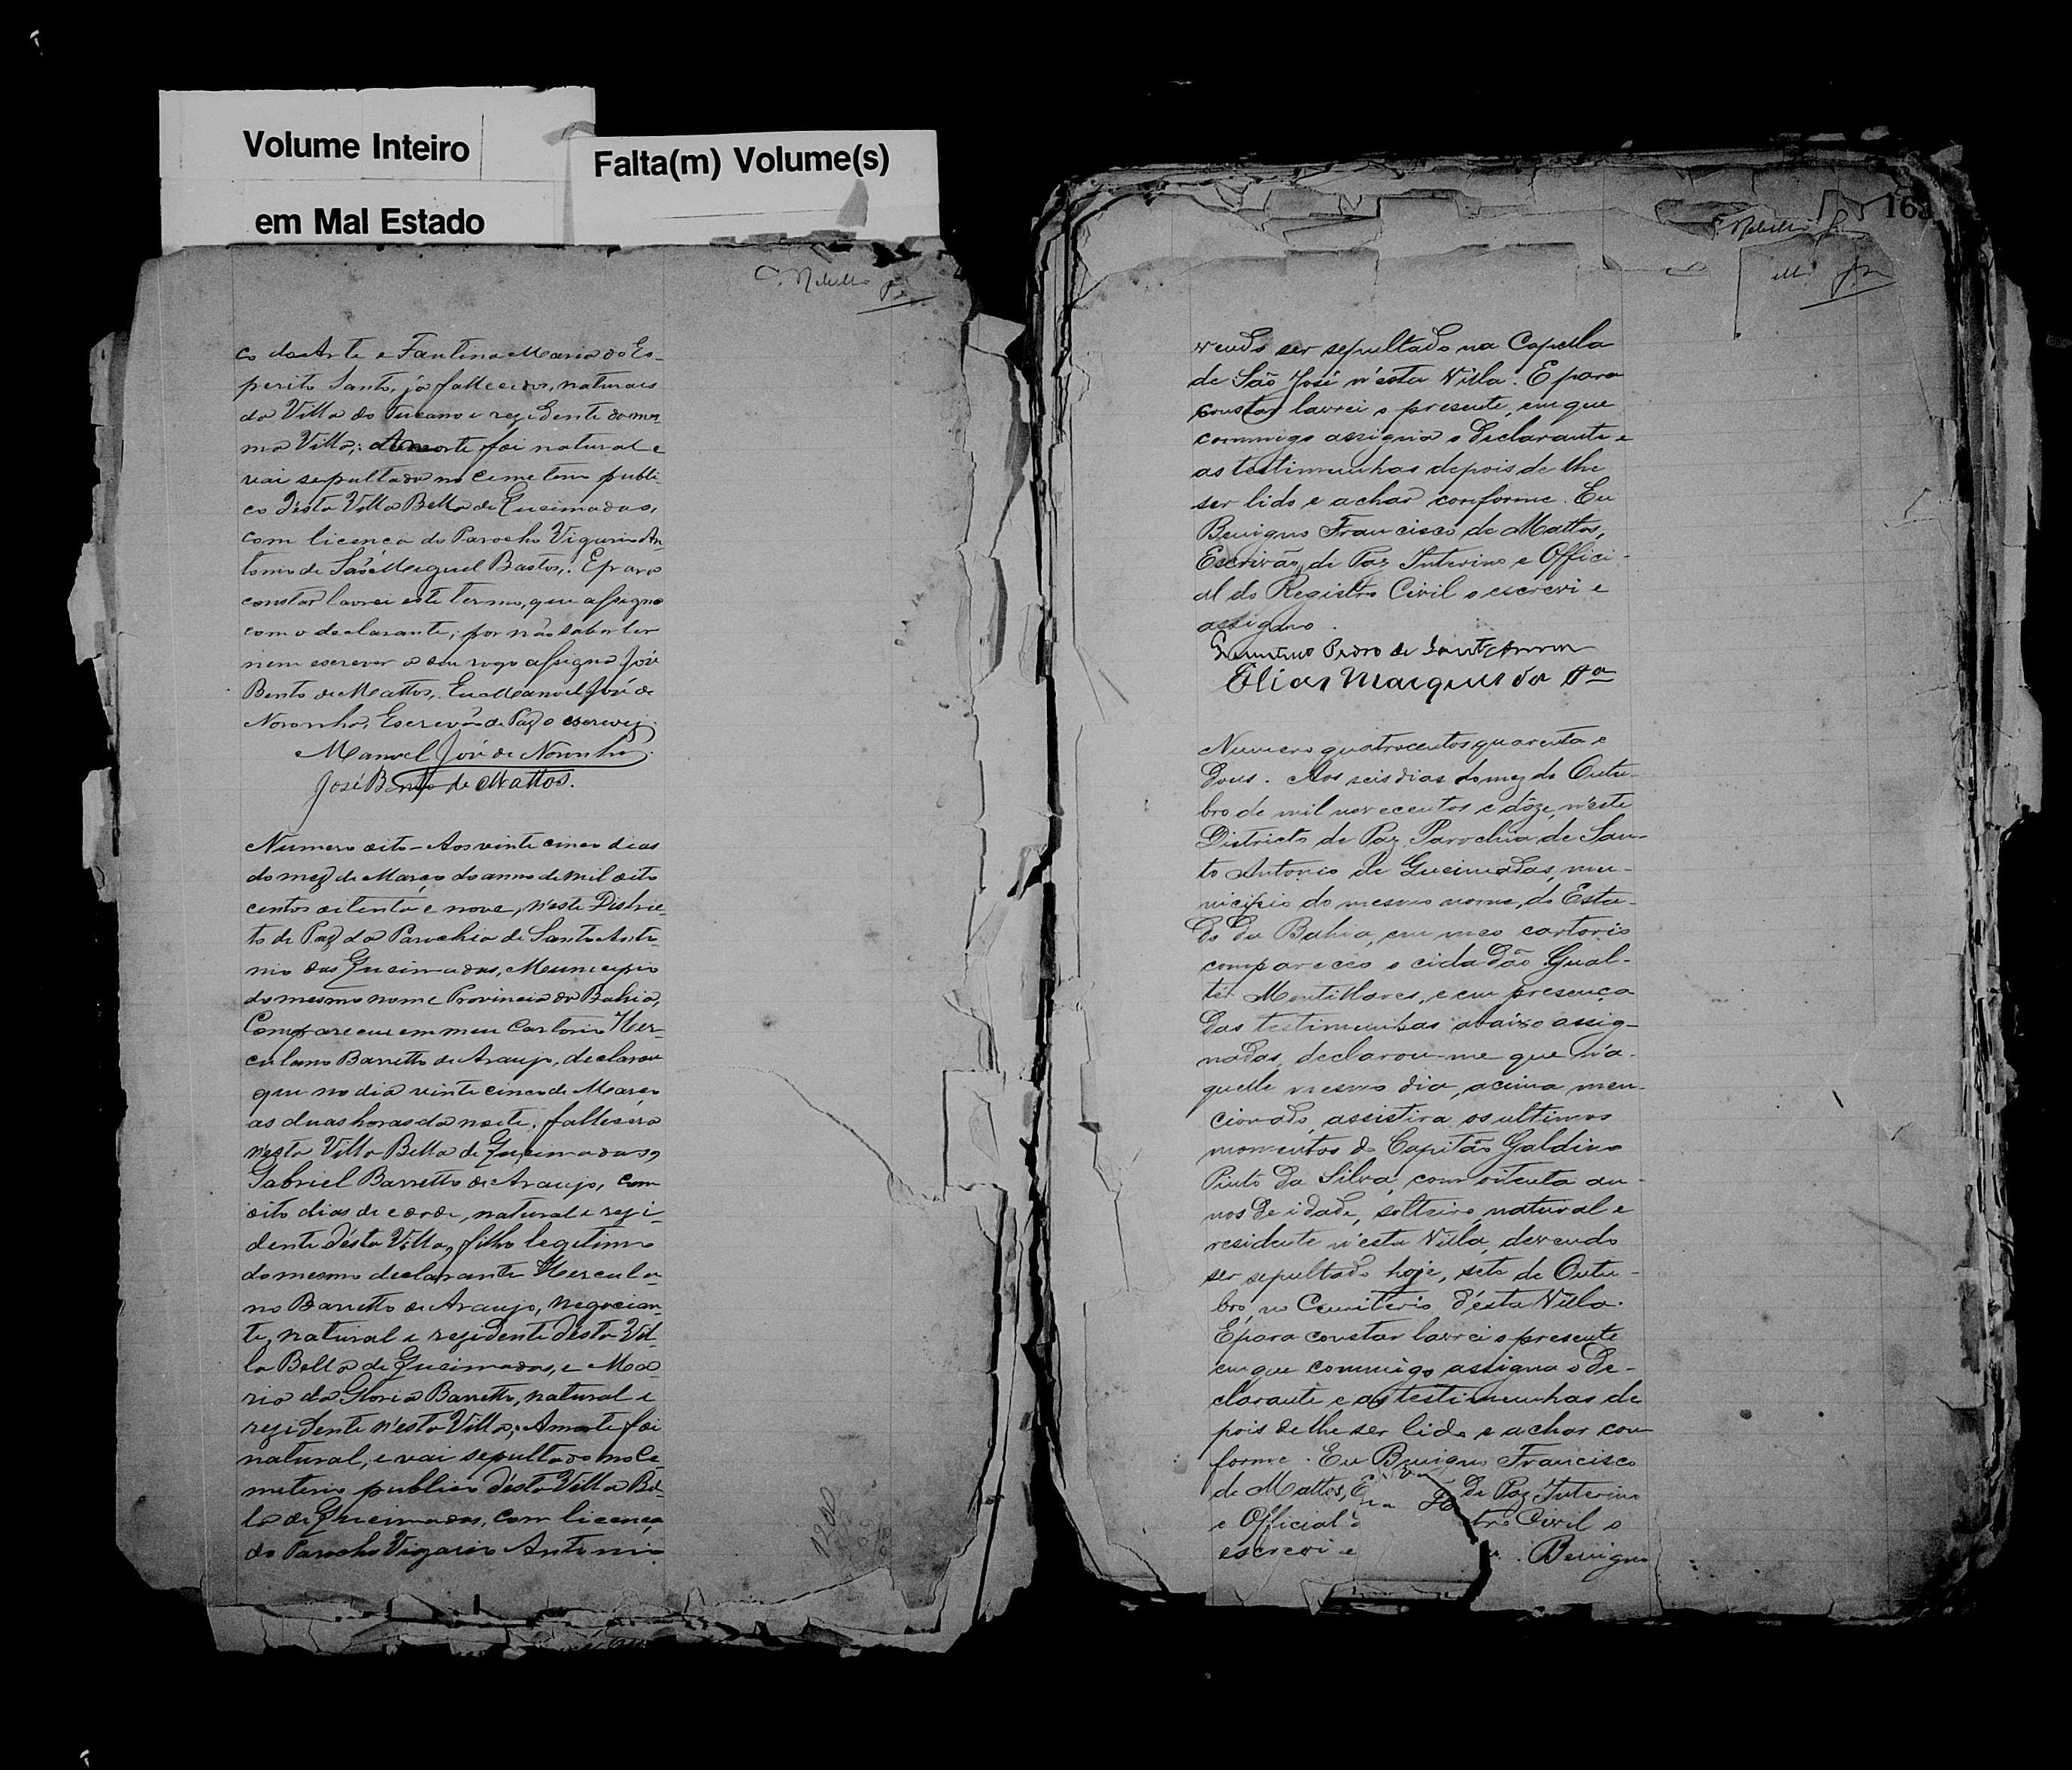 Volume Inteiro
em Mal Estado
Falta(m) Volume(s)
C. Rebello
co da Arte e Fautina Maria do Es-
perito Santo, já fallecidos, naturais
da Villa do Tucano e rezidente da mes-
ma Villa; A morte foi natural e
vai sepultada no cimeterio publi-
co désta Villa Bella de Queimadas,
com licenca do Parocho Vigario An-
tonio de São Meguel Bastos,. E para
constar lavrei este termo, que assigno
com o declarante; por não saber ler
nem escrever a seu rogo assigna José
Bento de Mattos,. Eu Manoel José de
Noronha, Escrevão de Paz o escrevy.
Manoel José de Noronha
José Bento de Mattos.
Numero oito - Aos vinte cinco dias
do mez de Março do anno de mil oito
centos oitenta e nove, n'este Distric-
to de Paz da Parochia de Santo Anto-
nio das Queimadas, Meunicipio
do mesmo nome Provincia da Bahia,
Compareceu em meu Cartorio Her-
culano Barretto de Araujo, declarou
que no dia vinte cinco de Março
as duas horas da noite, fallecera
n'esta Villa Bella de Queimadas,
Gabriel Barretto de Araujo, com
oito dias de edade, natural e rezi-
dente d'ésta Villa, filho legitimo
do mesmo declarante Hercula-
no Barretto de Araujo, negocian-
te, natural e rezidente désta Vil-
la Bella de Queimadas, e Ma-
ria da Gloria Barretto, natural e
rezidente n'esta Villa; A morte foi
natural, e vai sepultado no Ce-
miterio publico désta Villa Bel-
la de Queimadas, com licença
do Parocho Vigario Antonio
163
Rebello
vendo ser sepultado na Capella
de São José n'esta Villa. E para
constar lavrei o presente, em que
commigo assigna o declarante e
as testimunhas depois de lhe
ser lido e achar conforme. Eu
Benigno Francisco de Mattos,
Escrivão de Paz Interino e Offici-
al do Registro Civil o escrevi e
assigno.
Pedro de Sant'Anna
Elias Marques da
Numero quatrocentos quarenta e
dous. Aos seis dias do mez de Outu-
bro de mil novecentos e dôze, n'este
Districto de Paz Parochia de San-
to Antonio de Queimadas, mu-
nicipio do mesmo nome, do Esta-
do da Bahia, em meo cartorio
compareceo o cidadão Gual-
ter Montillares, e em presença
das testimunhas abaixo assig-
nadas, declarou-me que n'a-
quelle mesmo dia, acima men-
cionado, assistira os ultimos
momentos do Capitão Galdino
Pinto da Silva, com oitenta an-
nos de idade, solteiro, natural e
residente n'esta Villa, devendo
ser sepultado hoje, sete de Outu-
bro, no Cemiterio d'esta Villa.
E para constar lavrei o presente
em que commigo assigna o de-
clarante e as testimunhas de
pois de lhe ser lido e achar con
forme. Eu Benigno Francisco
de Mattos, E de Paz Interino
e Official tro Civil o
escrevi e . Benigno